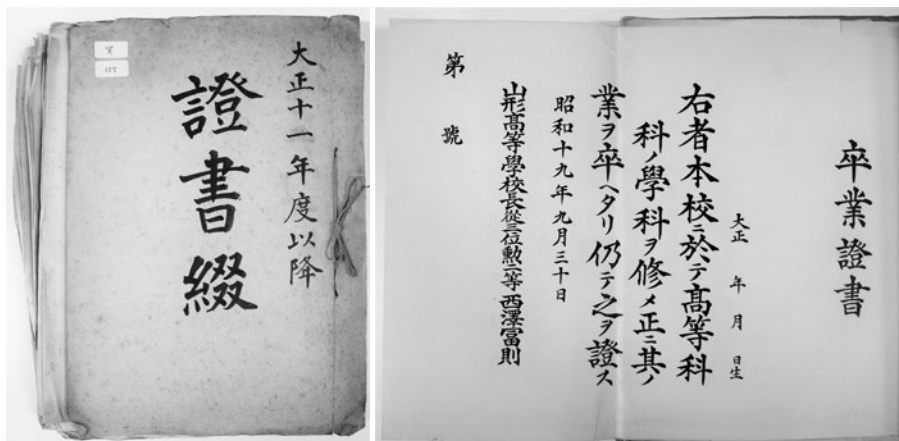 大正十一年度以降
證書綴
卒業證書
大正　年　月　日生
右者本校ニ於テ高等科
科ノ學科ヲ修メ正ニ其ノ
業ヲ卒ヘタリ仍テ之ヲ證ス
昭和十九年九月三十日
山形高等學校長從三位勲二等西澤富則
第　號